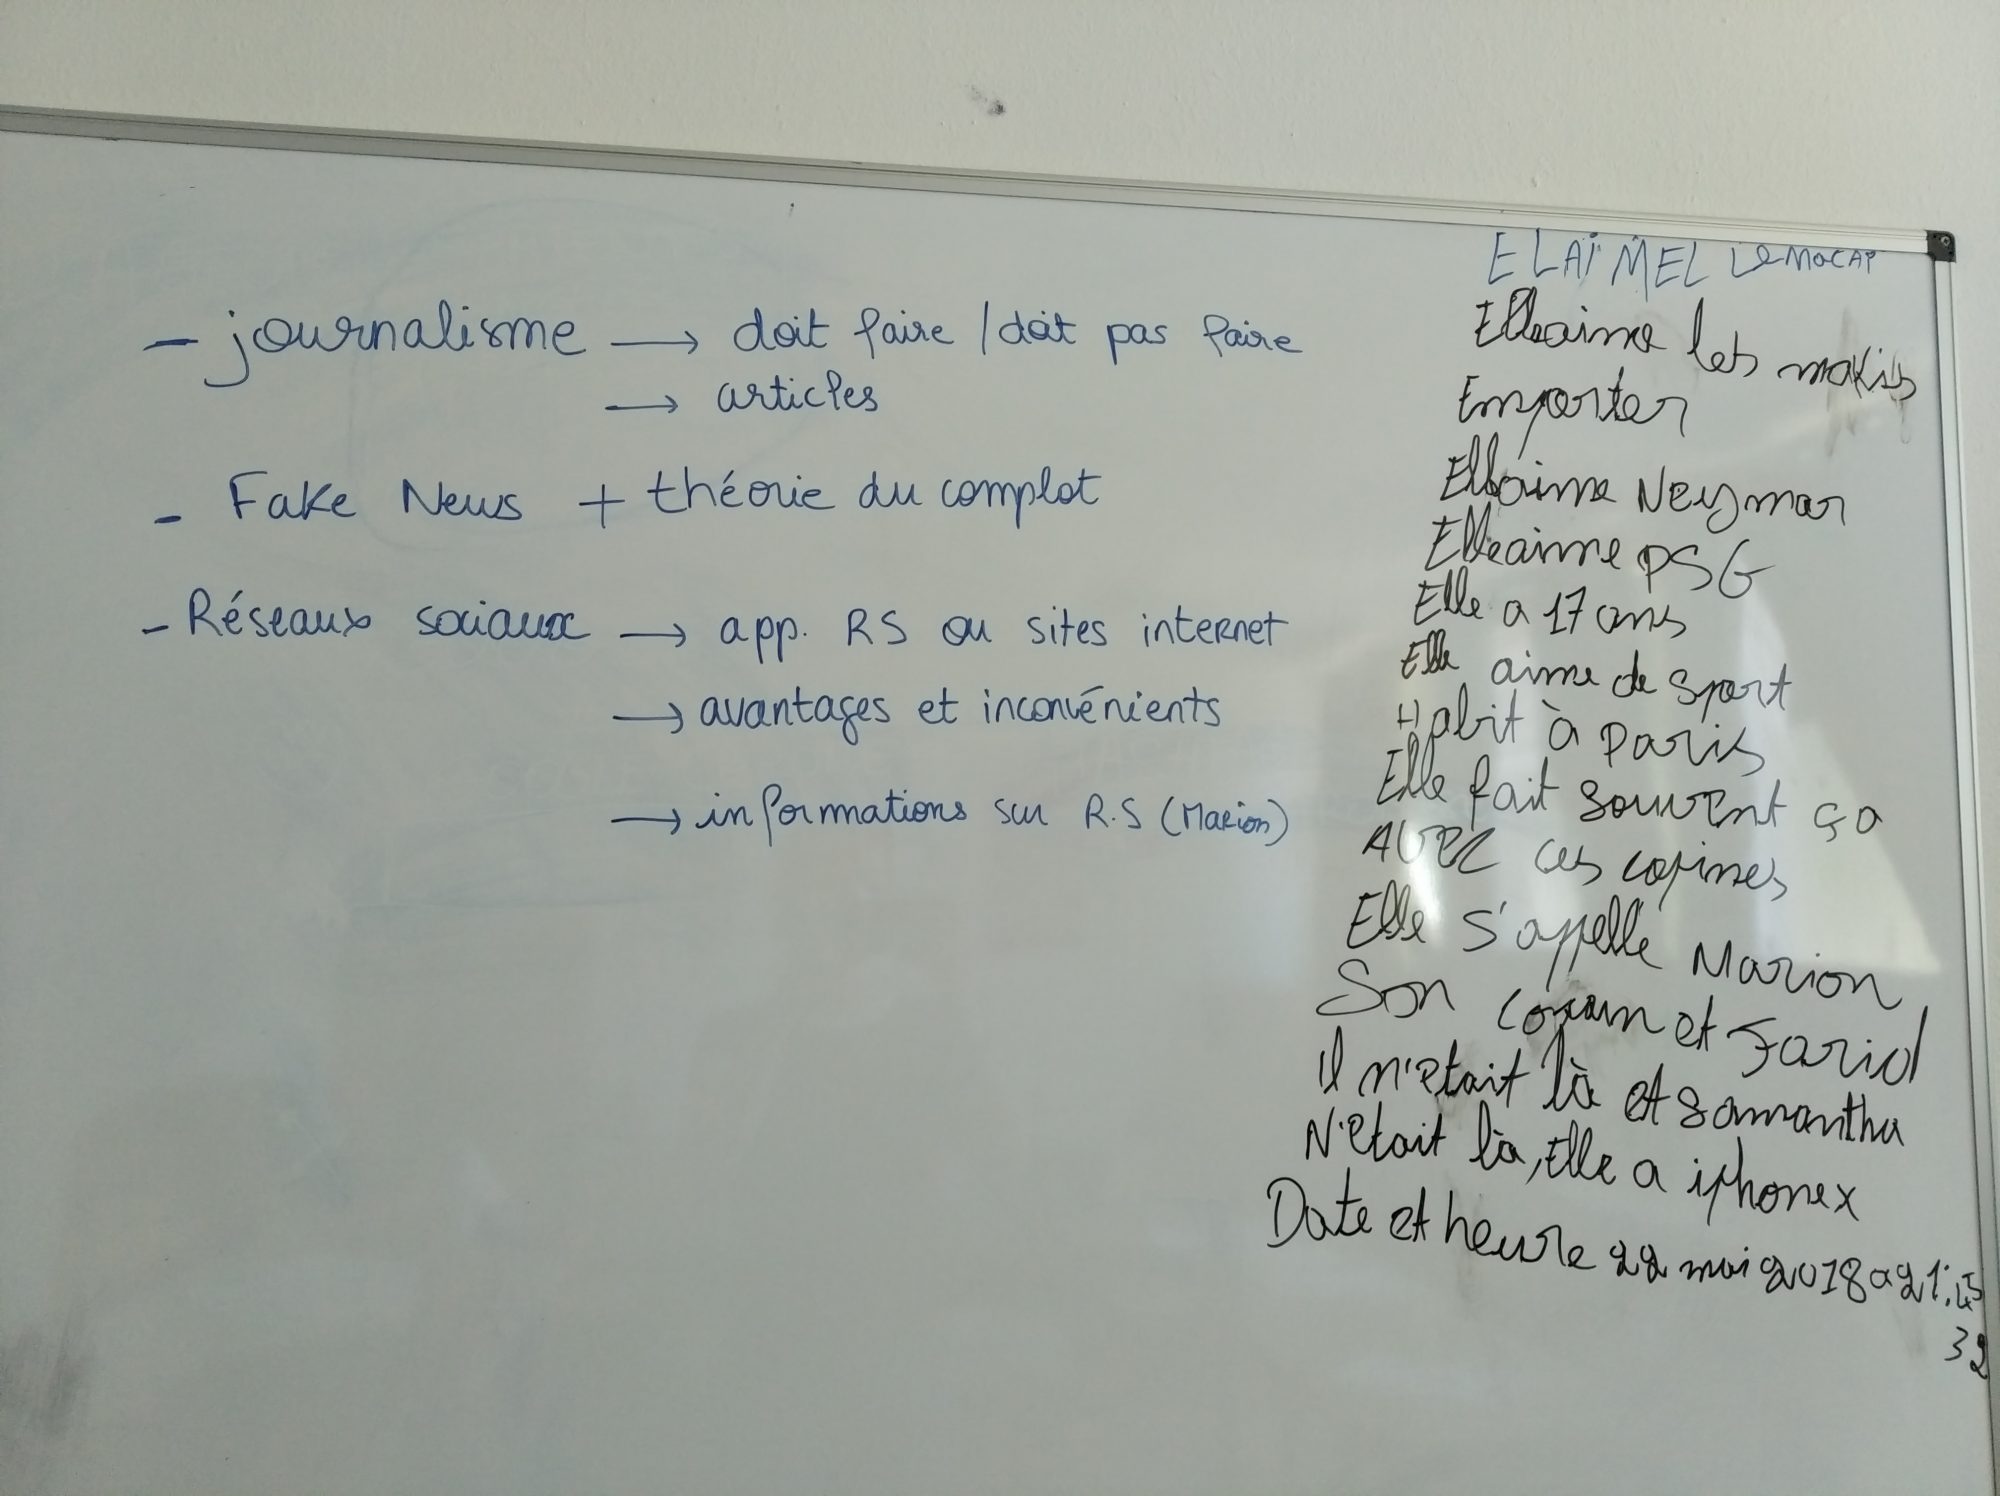 - journalisme → doit faire / doit pas faire
→ articles
- Fake News + théorie du complot
- Réseaux sociaux → app. RS ou sites internet
→ avantages et inconvénients
→ informations sur R.S (Marion)
ELAIMEL
Elle aime les makis
Emporter
Elle aime Neymar
Elle aime PSG
Elle a 17 ans
Elle aime de sport
Habit à Paris
Elle fait souvent ça
AVEC ces copines
Elle s'appelle Marion
Son copain et Farid
Il n'etait là et Samantha
N'etait là, Elle a iphonex
Date et heure 22 mai 2018 a 21:45
32